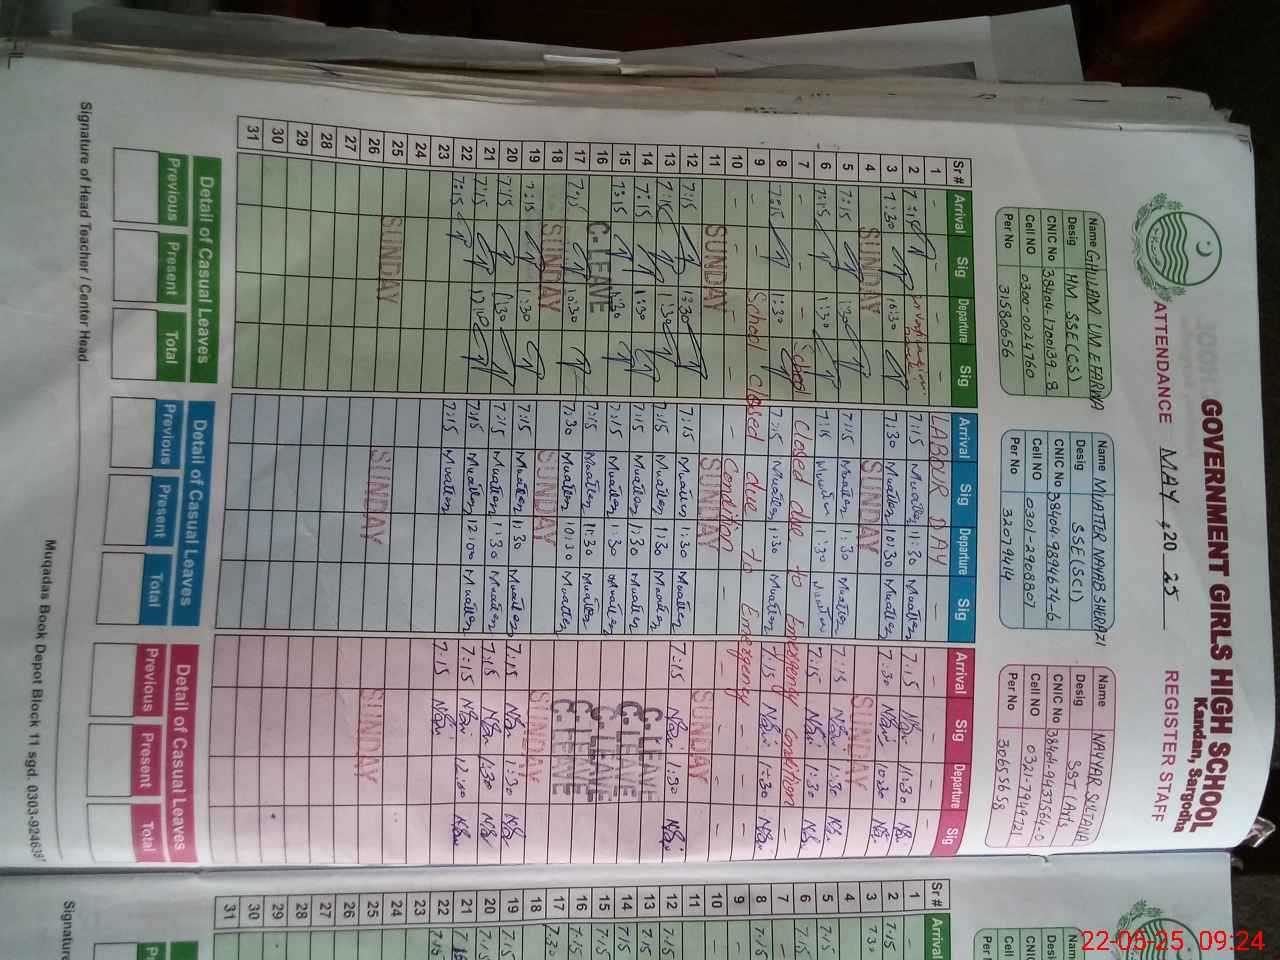 GOVERNMENT GIRLS HIGH SCHOOL
Kandan, Sargodha
ATTENDANCE MAY, 20 25 REGISTER STAFF
Name GHULAM UM E FARWA
Desig HM SSE(CS)
CNIC No 38404-1700139-8
Cell NO 0300-0024760
Per No 31580656
Name MUATTER NAYAB SHERAZI
Desig SSE(SCI)
CNIC No 38404-9894674-6
Cell NO 0301-2908807
Per No 32079414
Name NAYYAR SULTANA
Desig SST (Arts
CNIC No 38404-9437564-0
Cell NO 0321-7949721
Per No 30655658
Sr# Arrival Sig Departure Sig Arrival Sig Departure Sig Arrival Sig Departure Sig
1 - - - - LABOUR DAY
2 7:15 7:15 Muatter 11:30 Muatter 7:15 11:30
3 7:30 10:30 7:30 Muatter 10:30 Muatter 7:30 10:30
4 SUNDAY SUNDAY SUNDAY
5 7:15 1:30 7:15 Muatter 1:30 Muatter 7:15 1:30
6 7:15 1:30 7:15 Muatter 1:30 Muatter 7:15 1:30
7 - - - School closed due to Emergency condition
8 7:15 1:30 7:15 Muatter 1:30 Muatter 7:15 1:30
9 - - - School closed due to Emergency
10 - - - - - Condition - - - -
11 SUNDAY SUNDAY SUNDAY
12 7:15 1:30 7:15 Muatter 1:30 Muatter 7:15 1:30
13 7:15 1:30 7:15 Muatter 1:30 Muatter C-LEAVE
14 7:15 1:30 7:15 Muatter 1:30 Muatter C-LEAVE
15 7:15 1:30 7:15 Muatter 1:30 Muatter C-LEAVE
16 C-LEAVE 7:15 Muatter 11:30 Muatter C-LEAVE
17 7:15 10:30 7:30 Muatter 10:30 Muatter C-LEAVE
18 SUNDAY SUNDAY SUNDAY
19 7:15 1:30 7:15 Muatter 1:30 Muatter 7:15 1:30
20 7:15 1:30 7:15 Muatter 1:30 Muatter 7:15 1:30
21 7:15 7:15 Muatter 12:00 Muatter 7:15 12:00
22 7:15 7:15 Muatter 7:15
23
24
25 SUNDAY SUNDAY SUNDAY
26
27
28
29
30
31
Detail of Casual Leaves
Previous Present Total
Detail of Casual Leaves
Previous Present Total
Detail of Casual Leaves
Previous Present Total
Signature of Head Teacher / Center Head
Muqadas Book Depot Block 11 sgd.
Sr# Arrival
1 -
2 7:15
3 7:30
4
5 7:15
6 7:15
7
8 7:15
9
10
11
12 7:15
13 7:15
14 7:15
15 7:15
16 7:15
17 7:30
18
19 7:15
20 7:15
21
22 7:15
23
24
25
26
27
28
29
30
31
Desig
CNIC
Cell
Per No
Signature
22-05-25 09:24